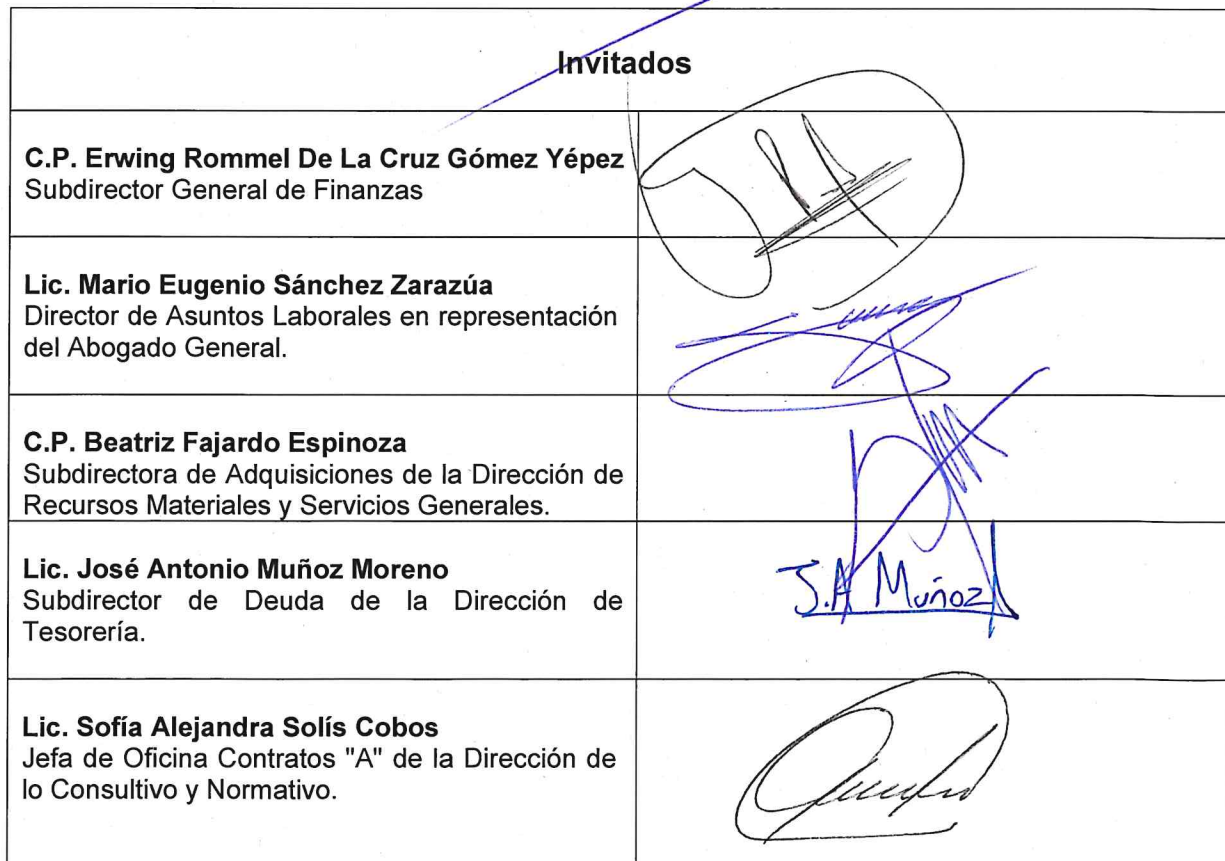 Invitados
C.P. Erwing Rommel De La Cruz Gómez Yépez
Subdirector General de Finanzas
Lic. Mario Eugenio Sánchez Zarazúa
Director de Asuntos Laborales en representación
del Abogado General.
C.P. Beatriz Fajardo Espinoza
Subdirectora de Adquisiciones de la Dirección de
Recursos Materiales y Servicios Generales.
Lic. José Antonio Muñoz Moreno
Subdirector de Deuda de la Dirección de
Tesorería.
J.A Muñoz
Lic. Sofía Alejandra Solís Cobos
Jefa de Oficina Contratos "A" de la Dirección de
lo Consultivo y Normativo.